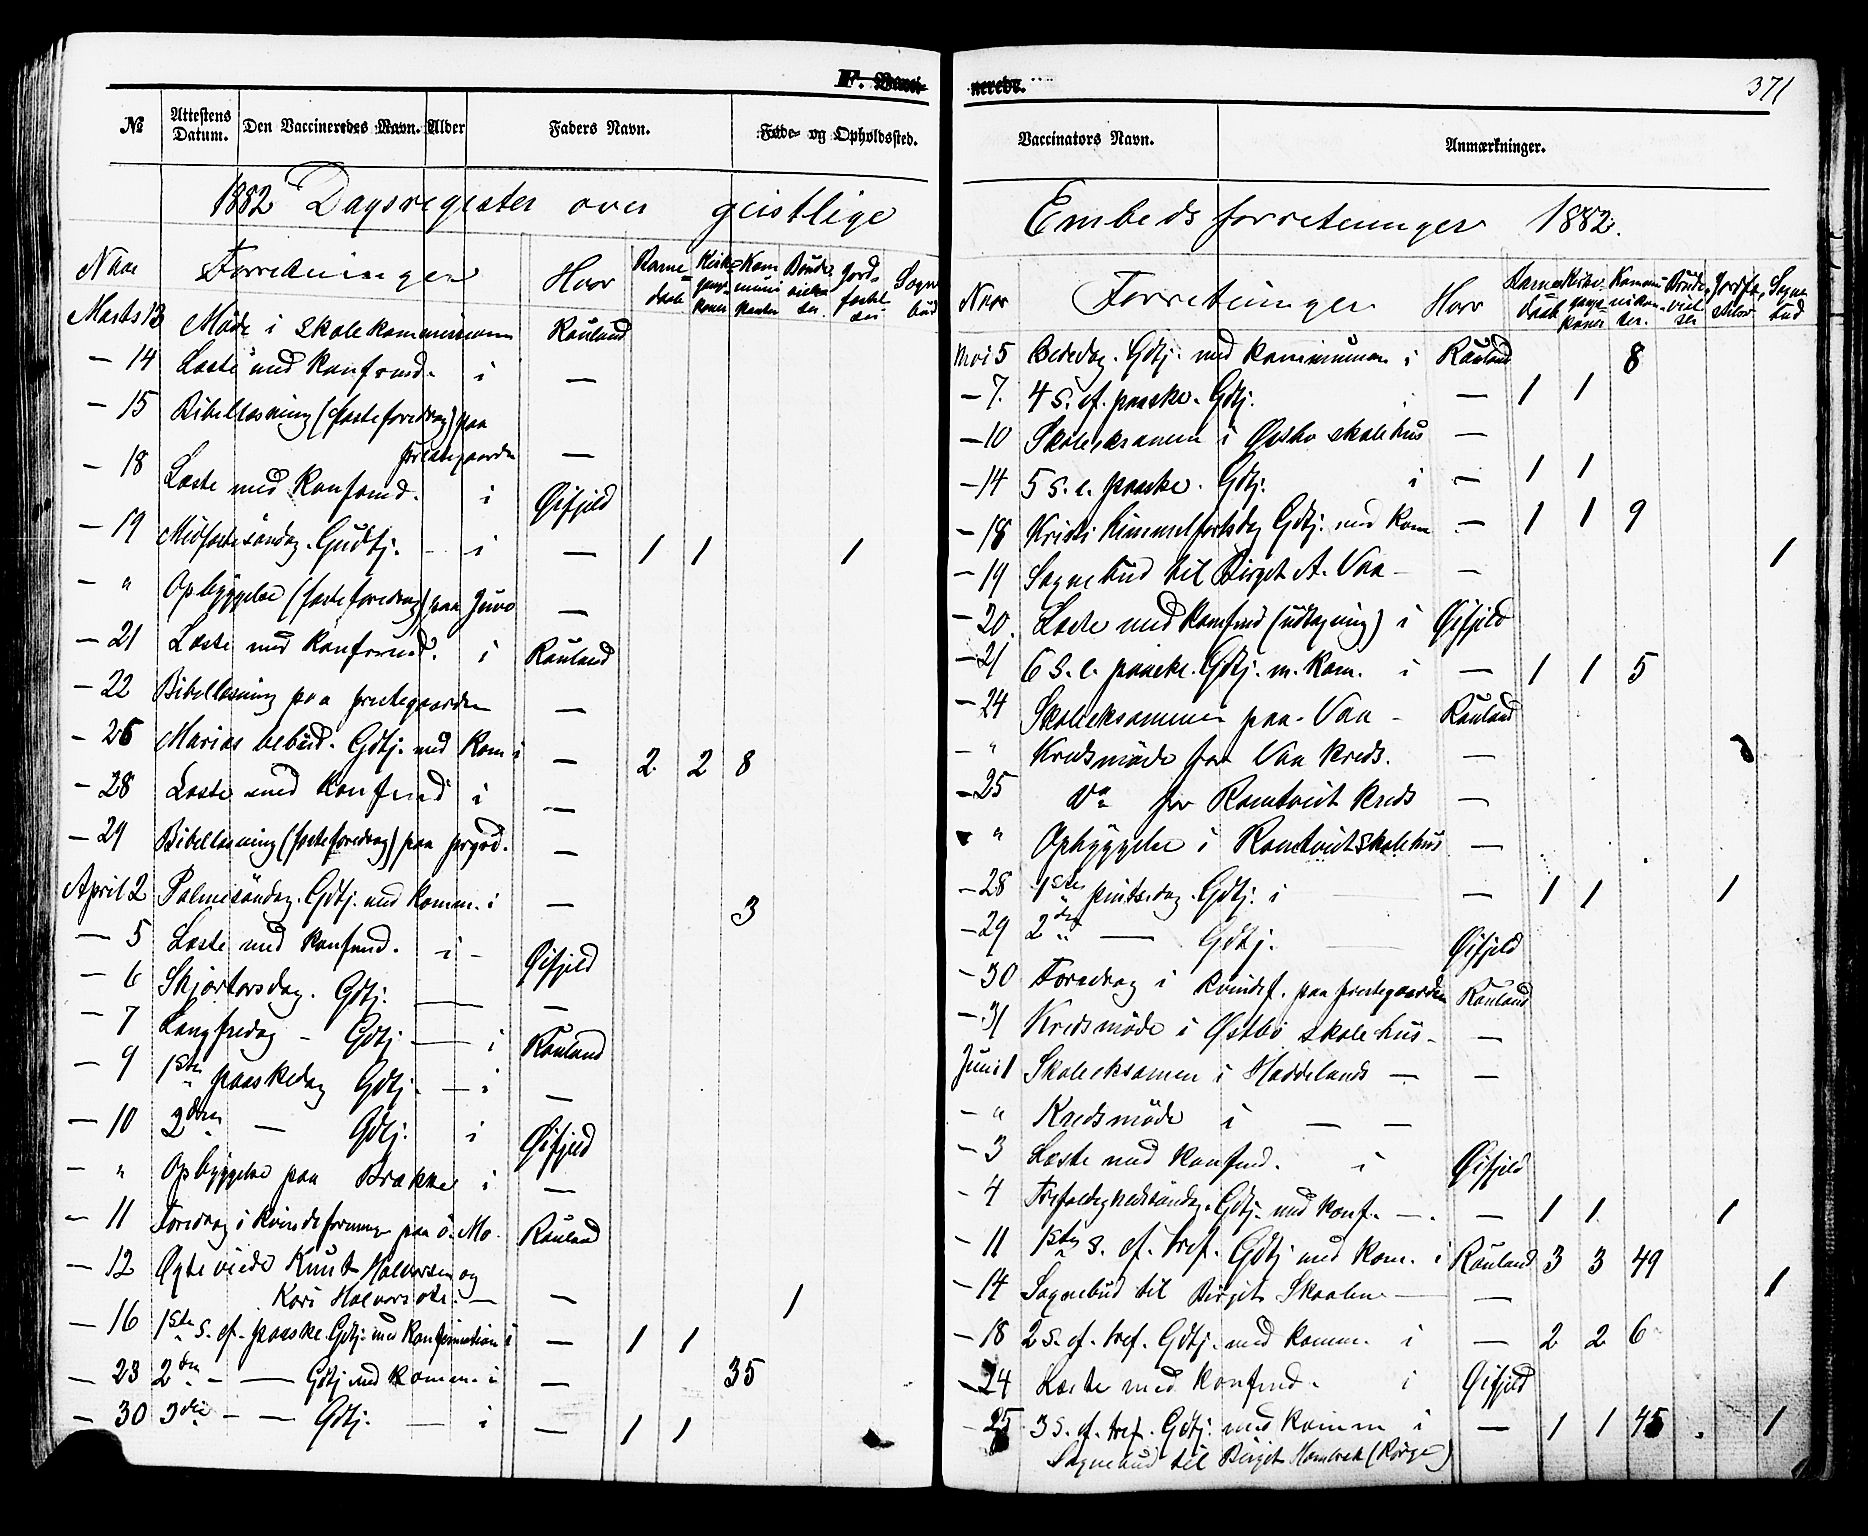 F. Vacci-
№ Attestens Datum. Den Vaccineredes Navn. Alder Faders Navn. Føde- og Opholdssted.
1882 Dagsregister over geistlige
Naar Forretninger Hvor Barnedaab Kirkegangskoner Kommunikanter Brudevielser Jordfæstelser Sognebud
Marts 13 Møde i skolekommissionen Rauland
— 14 Læste med konfirmd. i —
— 15 Bibellæsning (fasteforedrag) paa
prestegaarden —
— 18 Læste med konfirmd. i Øifjeld
— 19 Midfastesøndag. Gudtj. i — 1 1 1
— " Opbyggelse (fasteforedrag) paa Juvo —
— 21 Læste med konfirmd. i Rauland
— 22 Bibellæsning paa prestegaarden —
— 26 Marias bebud. Gdtj. med kom i — 2 2 8
— 28 Læste med konfirmd i —
— 29 Bibellæsning (fasteforedrag) paa prgrd. —
April 2 Palmesøndag. Gdtj. med komm. i — 3
— 5 Læste med konfirmd. i — Øifjeld
— 6 Skjærtorsdag. Gdtj. — —
— 7 Langfredag — Gdtj — i Rauland
— 9 1ste paaskedag Gdtj. — i —
— 10 2den — Gdtj. i Øifjeld
— " Opbyggelse paa Brække i —
— 11 Foredrag i kvindeforening paa ø. Mo. Rauland
— 12 Ægteviede Knut Halvorsen og
Kari Halvorsdtr. — — 1
— 16 1ste s. ef. paaske Gdtj. med konfirmation i — 1 1
— 23 2den — — Gdtj med komm. i — 35
— 30 3die — — Gdtj. — i — 1 1
nerede. 371
Vaccinators Navn. Anmærkninger.
Embedsforretninger 1882.
Naar Forretninger Hvor Barnedaab Kirkegangskoner Kommunikanter. Brudevielser Jordfæstelser Sognebud
Mai 5 Bededag. Gdtj. med kommunion i Rauland 8
— 7. 4 s. ef. paaske. Gdtj. — 1 1
— 10 Skoleeksamen i Østbø skolehus —
— 14 5 s. e. paaske. Gdtj. i — 1 1
— 18 Kristi Himmelfartsdag Gdtj. med kom — 1 1 9
— 19 Sognebud til Birget A. Vaa — — 1
— 20. Læste med konfmd (udtagning) i Øifjeld
— 21 6 s. e. paaske. Gdtj. m. kom. i — 1 1 5
— 24 Skoleeksamen paa Vaa — Rauland
— " Kredsmøde for Vaa kreds. —
— 25 Do for Romtveit kreds —
" Opbyggelse i Romtveit skolehus —
— 28 1ste pintsedag. Gdtj. i — 1 1 1
— 29 2den — Gdtj. Øifjeld
— 30 Foredrag i kvindef. paa prestegaarden Rauland
— 31 Kredsmøde i Østbø skolehus — —
Juni 1 Skoleeksamen i Haddelands — —
— " Kredsmøde i — —
— 3 Læste med konfmd. i Øifjeld
— 4 Trefoldighedssøndag. Gdtj. med konf. — — 1 1 1
— 11 1ste s. ef. tref. Gdtj med kom. i Rauland 3 3 49
— 14 Sognebud til Birgit Skaalen — — 1
— 18 2 s. ef. tref. Gdtj. med komm. i — 2 2 6
— 24 Læste med konfmd. i Øifjeld
— 25 3 s. ef. tref. Gdtj. med komm i — 1 1 45 1
Sognebud til Birgit